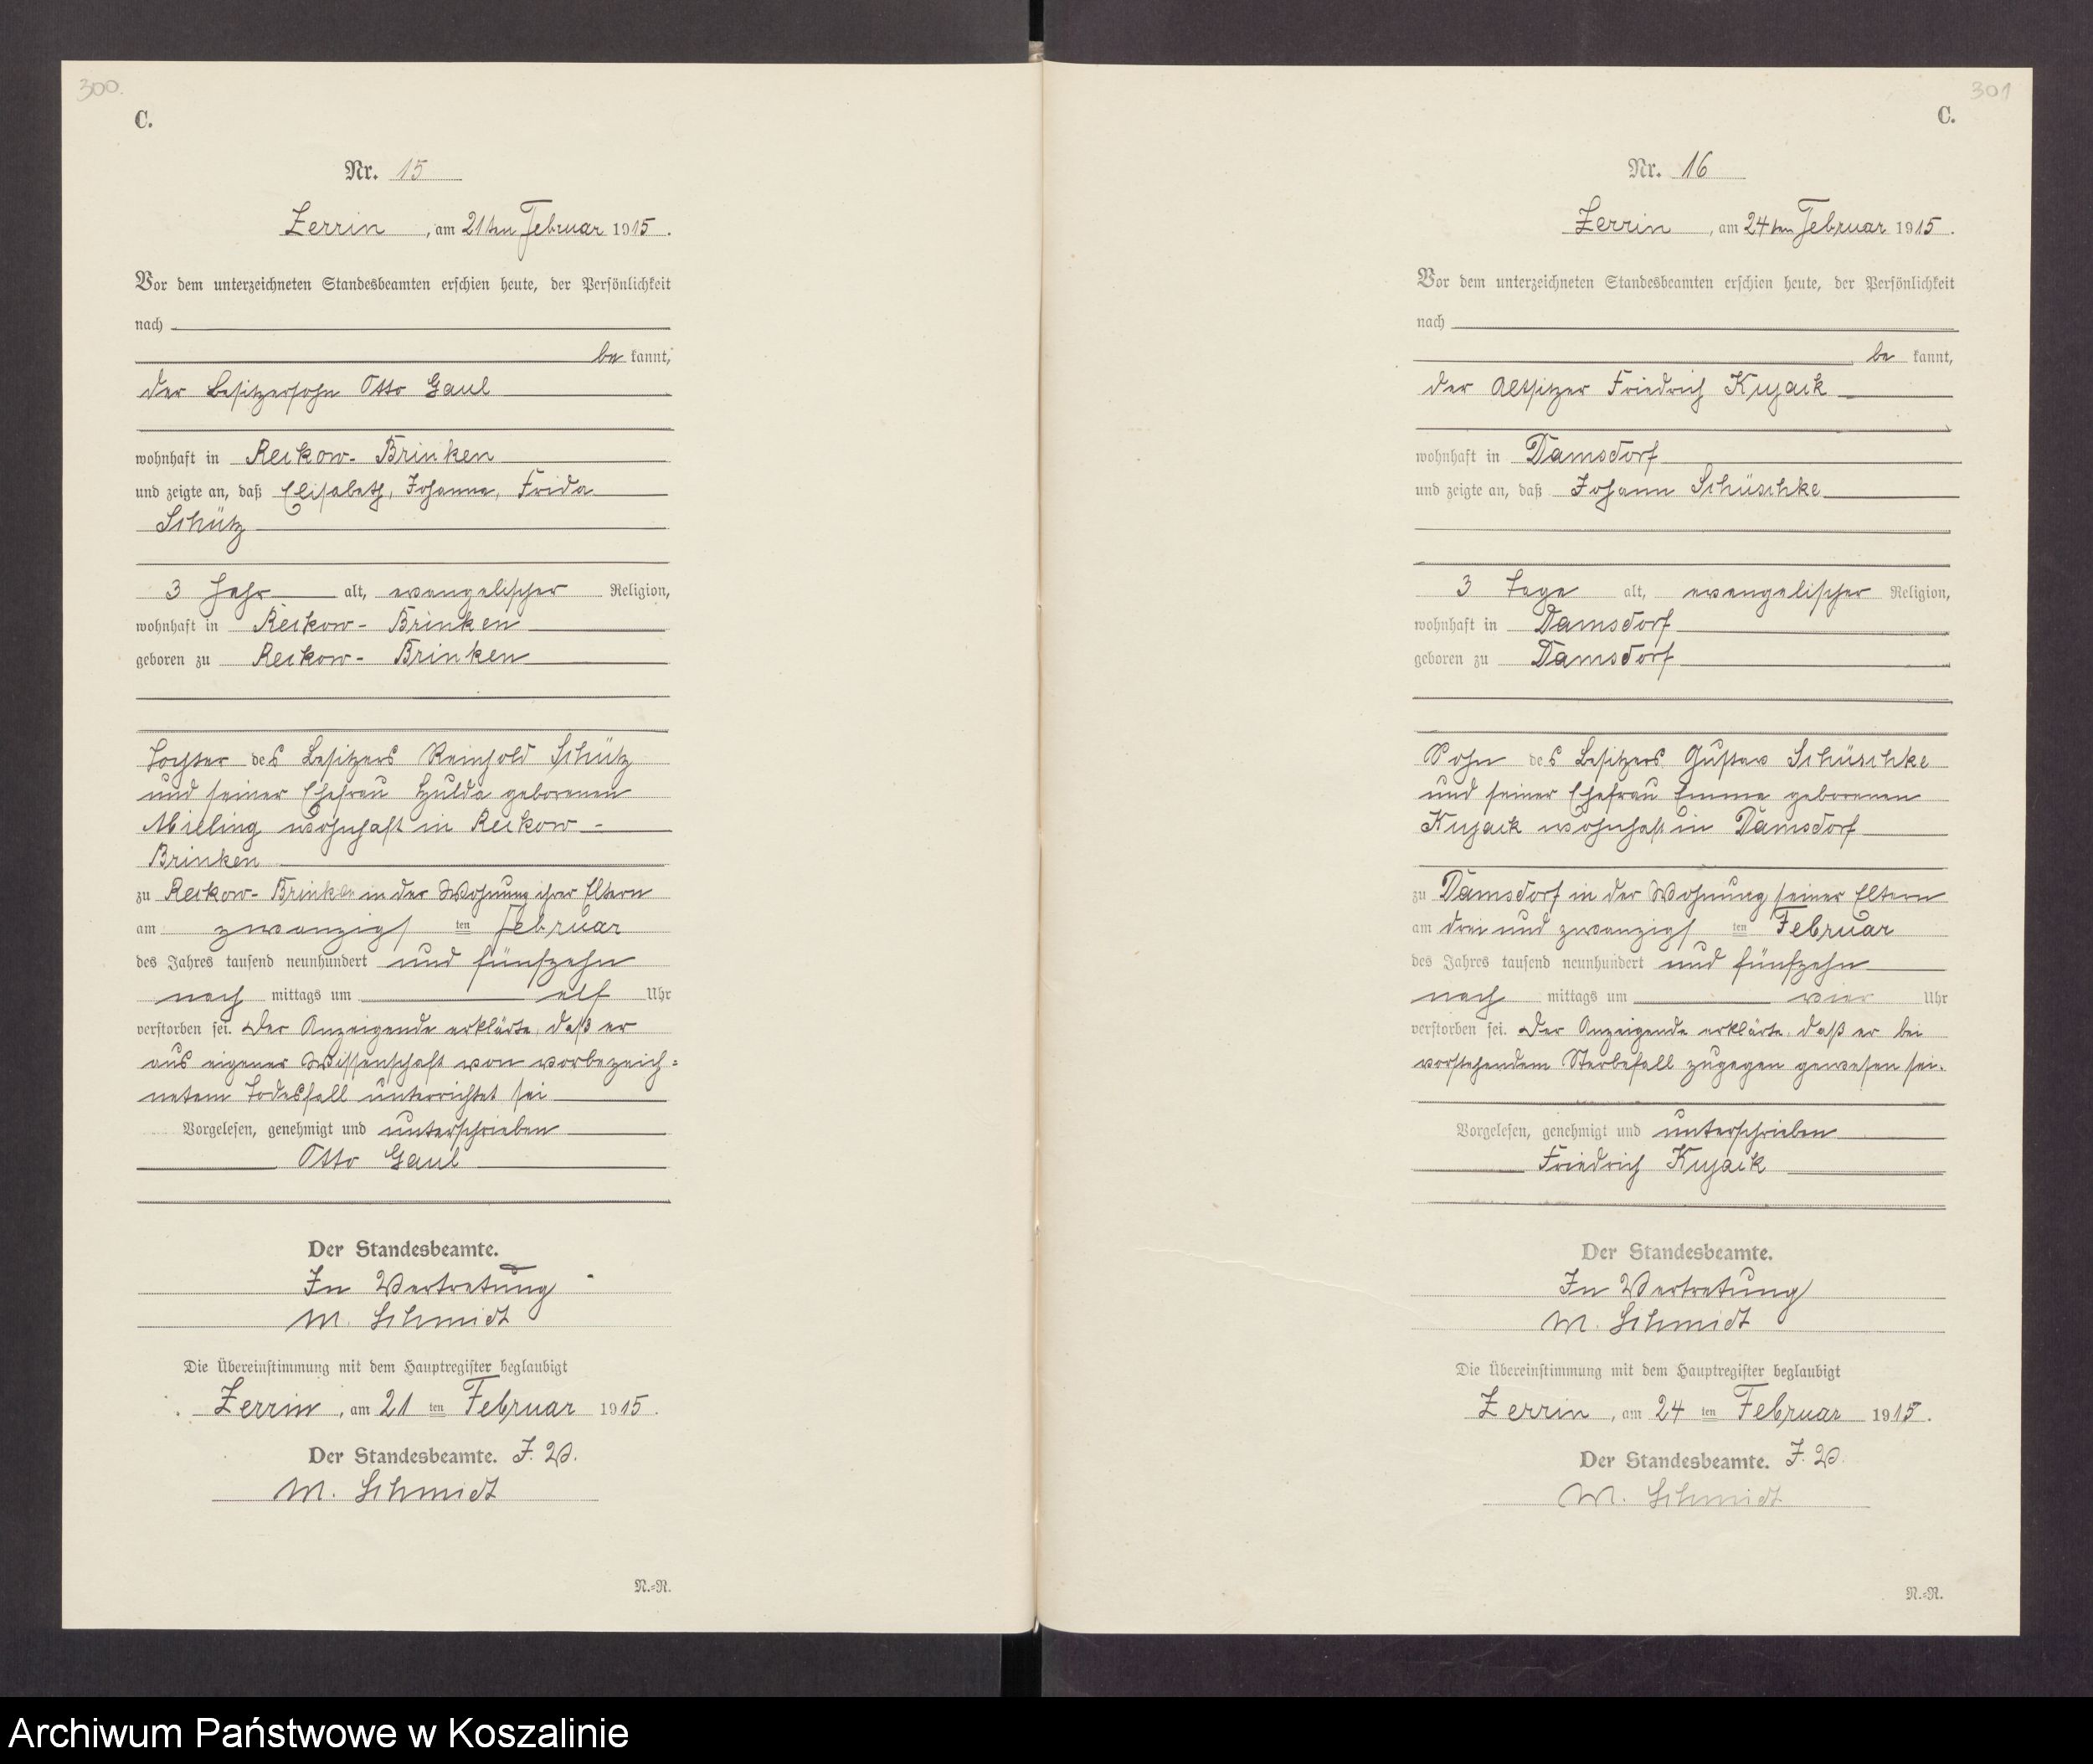 300.
C.
Nr. 15
Zerrin, am 21ten Februar 1915.
Vor dem unterzeichneten Standesbeamten erschien heute, der Persönlichkeit
nach
be kannt,
der Besitzersohn Otto Gaul
wohnhaft in Reckow-Brinken
und zeigte an, daß Elisabeth, Johanna, Frida
Schütz
3 Jahr alt, evangelischer Religion,
wohnhaft in Reckow-Brinken
geboren zu Reckow-Brinken
Tochter des Besitzers Reinhold Schütz
und seiner Ehefrau Hulda geborenen
wohnhaft in Reckow-
Brinken
zu Reckow-Brinken in der Wohnung ihrer Eltern
am zwanzigsten Februar
des Jahres tausend neunhundert und fünfzehn
nach mittags um elf Uhr
verstorben sei. Der Anzeigende erklärte, daß er
aus eigener Wissenschaft von vorbezeich=
netem Todesfall unterrichtet sei
Vorgelesen, genehmigt und unterschrieben
Otto Gaul
Der Standesbeamte.
In Vertretung
M. Schmidt
Die Übereinstimmung mit dem Hauptregister beglaubigt
Zerrin, am 21 ten Februar 1915.
Der Standesbeamte. I. V.
M. Schmidt
N.=R.
301
C.
Nr. 16
Zerrin, am 24ten Februar 1915.
Vor dem unterzeichneten Standesbeamten erschien heute, der Persönlichkeit
nach
be kannt,
der Altsitzer Friedrich Kujack
wohnhaft in Damsdorf
und zeigte an, daß Johann Schüschke
3 Tage alt, evangelischer Religion,
wohnhaft in Damsdorf
geboren zu Damsdorf
Sohn des Besitzers Gustav Schüschke
und seiner Ehefrau Emma geborenen
Kujack wohnhaft in Damsdorf
zu Damsdorf in der Wohnung seiner Eltern
am drei und zwanzigsten Februar
des Jahres tausend neunhundert und fünfzehn
nach mittags um vier Uhr
verstorben sei. Der Anzeigende erklärte, daß er bei
vorstehendem Sterbefall zugegen gewesen sei.
Vorgelesen, genehmigt und unterschrieben
Friedrich Kujack
Der Standesbeamte.
In Vertretung
M. Schmidt
Die Übereinstimmung mit dem Hauptregister beglaubigt
Zerrin, am 24 ten Februar 1915.
Der Standesbeamte. I. V.
M. Schmidt
N.=R.
Archiwum Państwowe w Koszalinie